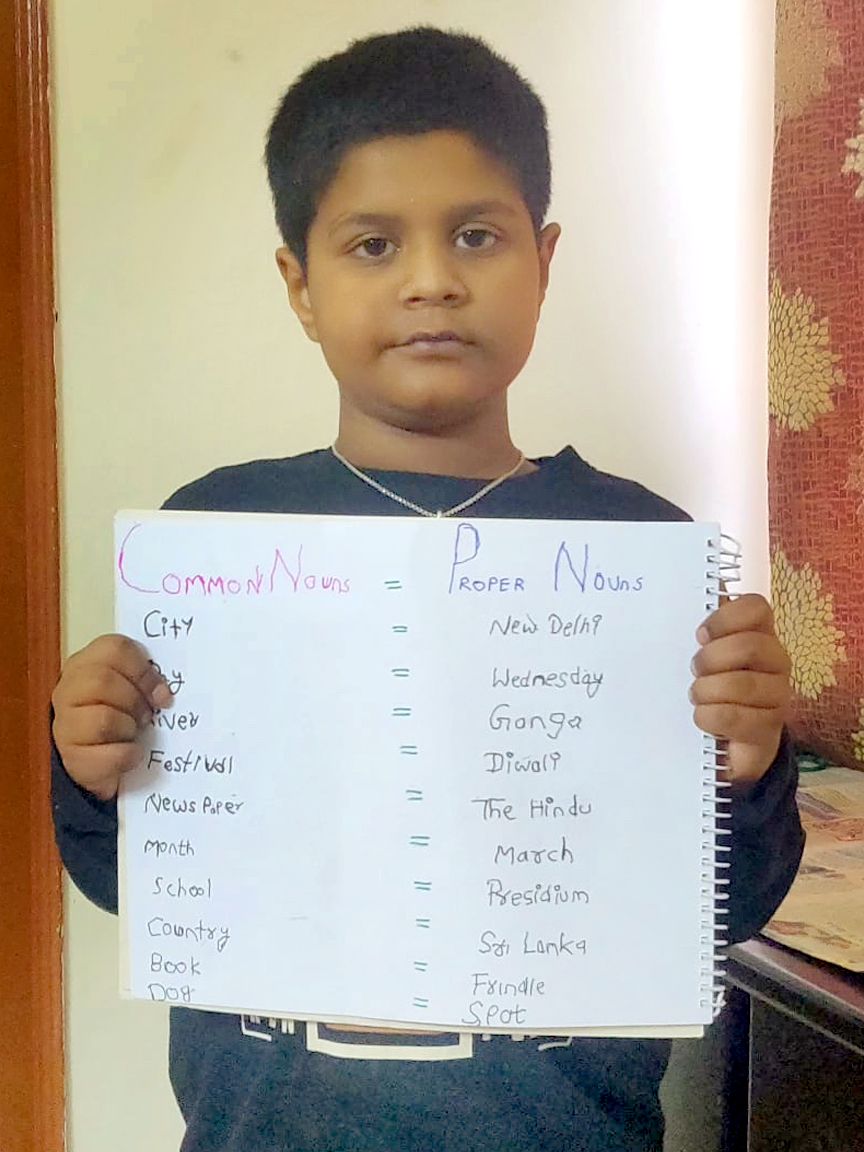 Common Nouns = Proper Nouns
City = New Delhi
= Wednesday
= Ganga
Festival = Diwali
News Paper = The Hindu
Month = March
School = Presidium
Country = Sri Lanka
Book = Frindle
Dog = Spot